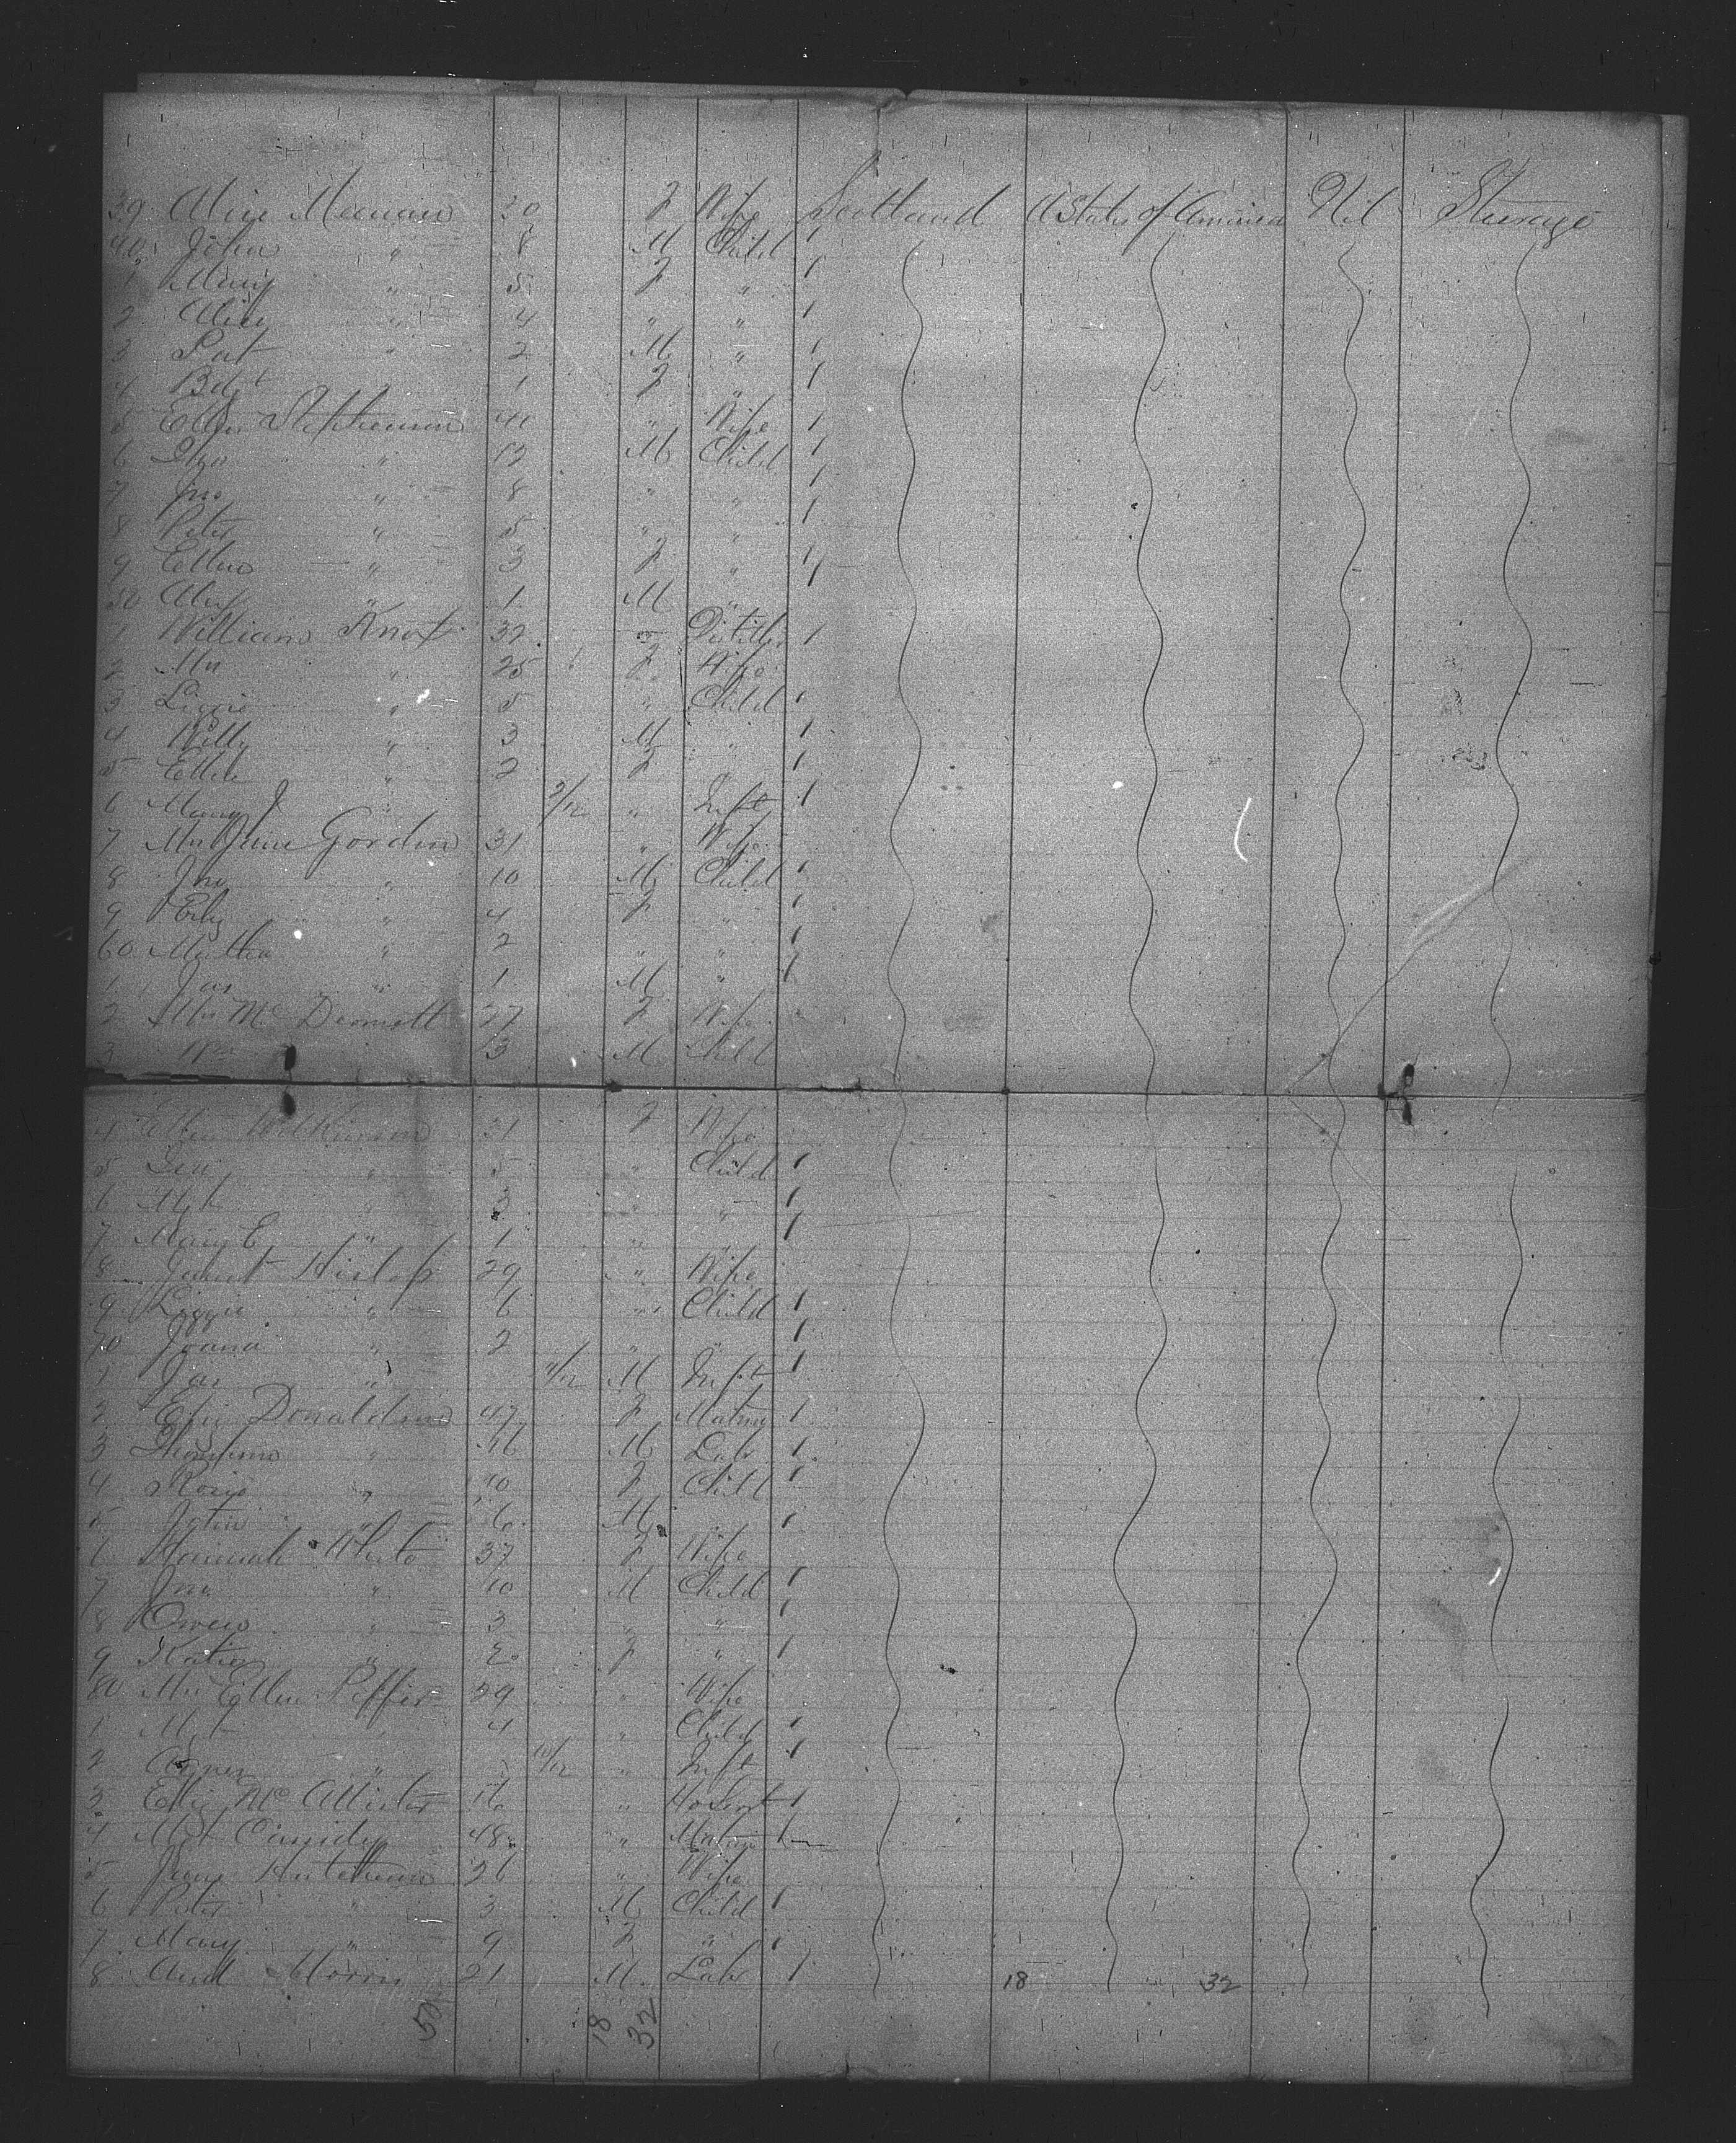 39 Alice Meenan 30 F Wife Scotland U States of America Nil Steerage
40 John " 8 M Child
1 Mary " 5 F "
2 Alice " 4 " "
3 Pat " 2 M "
4 Bdgt " 1 F "
5 Ellen Stephenson 40 " Wife
6 " 12 M Child
7 Jno " 8 " "
8 Peter " 5 " "
9 Ellen " 3 F "
50 Alex " 1 M "
1 William Knox 32 " Distiller
2 Mrs " 25 F Wife
3 Lizzie " 5 " Child
4 Willy " 3 M "
5 Ellen " 2 F "
6 Mary J " " Inft
7 Mrs Jane Gordon 31 " Wife
8 Jno " 10 M Child
9 Eliz " 4 F "
60 Martha " 2 " "
1 Jas " 1 M "
2 Mrs McDermott 27 F Wife
3 Wm 3 M Child
4 Ellen Wilkinson 31 F Wife
5 " 5 " Child
6 Mgt " 3 " "
7 Mary E " 1 " "
8 Janet Hislop 29 " Wife
9 Lizzie " 6 " Child
70 Joana " 2 " "
1 Jas " 11/12 M Inft
2 Donaldson 47 F Matron
3 " 16 M Labr
4 Rosie " 10 F Child
5 John " 6 M
6 Hannah White 37 F Wife
7 Jno " 10 M Child
8 Owen " 3 " "
9 Katie " 2 F "
80 Mrs Ellen 29 " Wife
1 Mgt 4 " Child
2 " 10/12 " Inft
3 McAllister 16 "
4 Mgt Cassidy 48 " Matron
5 Hutcheson 26 " Wife
6 Peter " 3 M Child
7 Mary " 9 F "
8 And Morris 21 M Labr 18 32
50 18 32